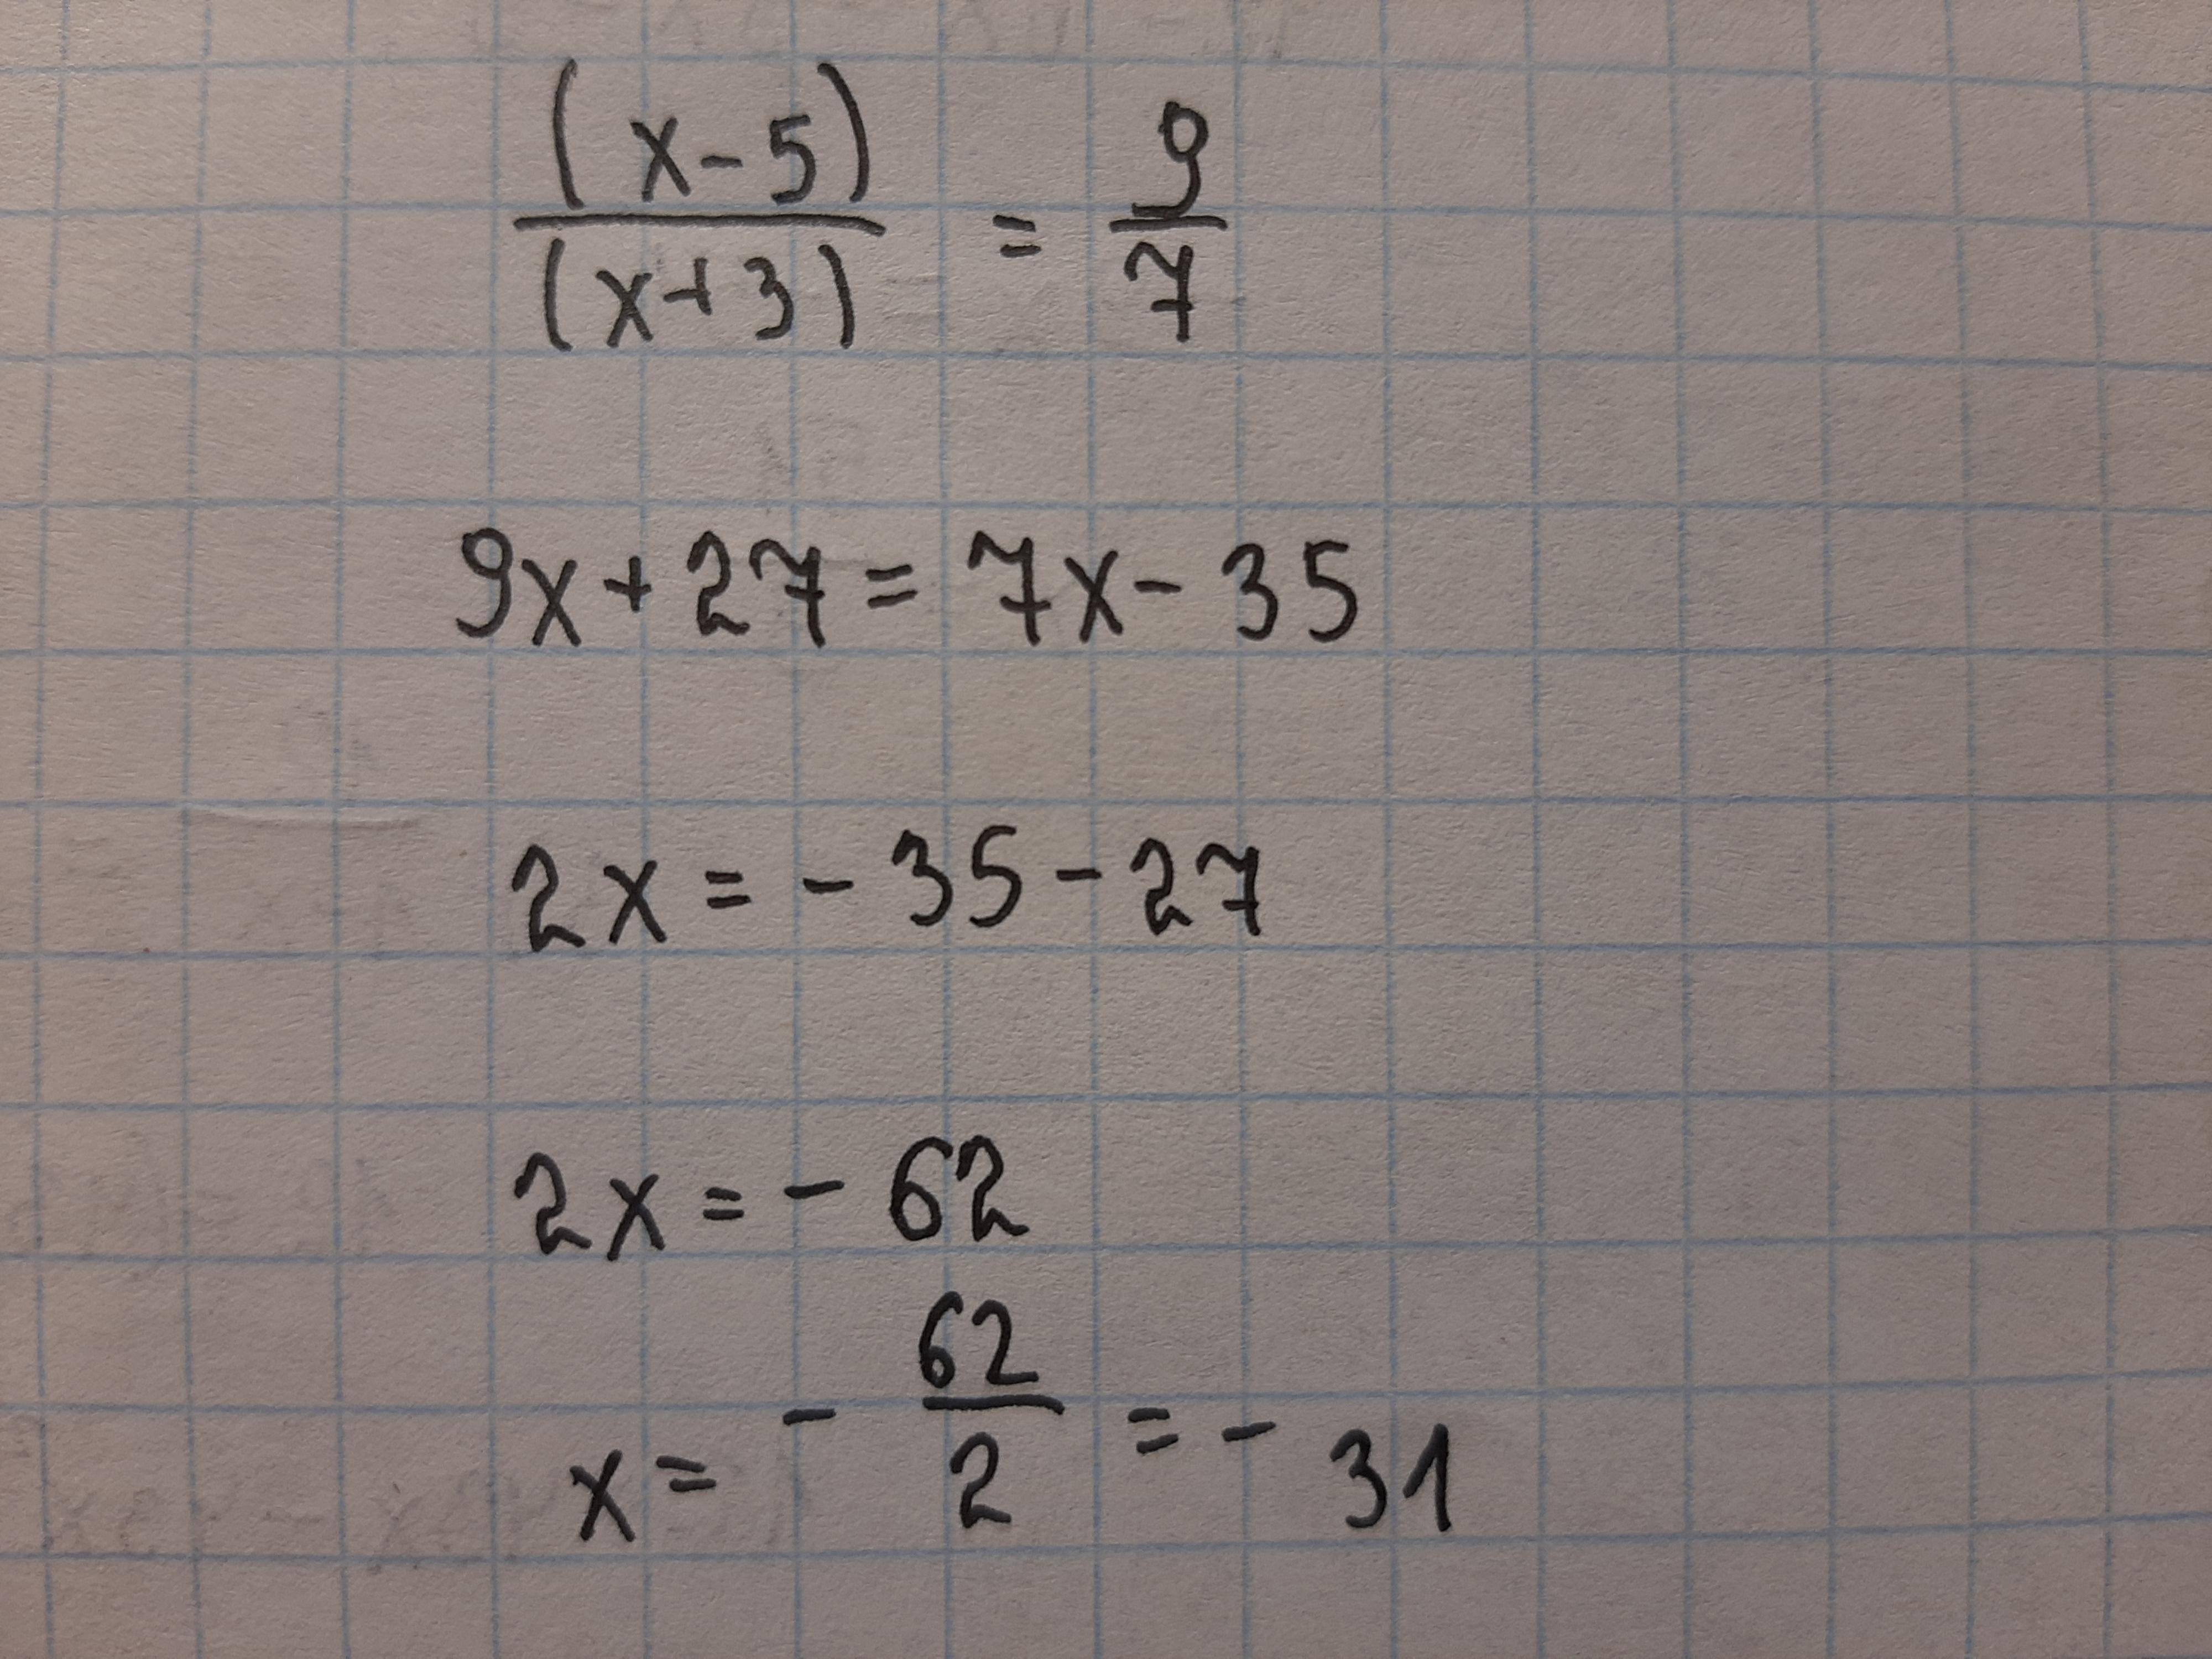 (x-5)/(x+3) = 9/7
9x+27=7x-35
2x=-35-27
2x=-62
x=-62/2=-31